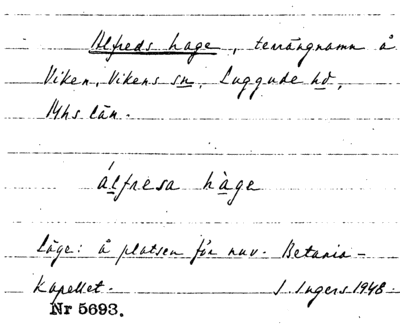 Alfreds hage, terrängnamn å
Viken, Vikens sn, Luggude hd,
Mhs län.
álfresa hàge
Läge: å platsen för nuv. Betania-
Kapellet. I. Ingers 1948.
Nr 5693.